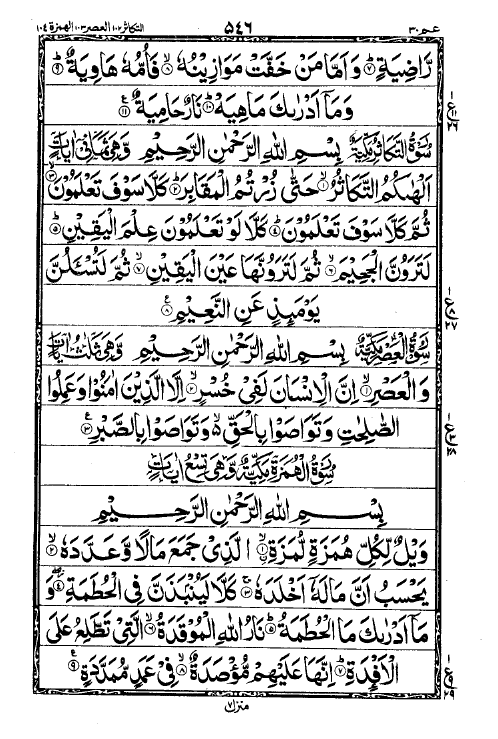 عم ٣٠ ٥٤٦ التكاثر ١٠٢ العصر ١٠٣ الهمزة ١٠٤
رَّاضِيَةٍ ﴿٧﴾ وَاَمَّا مَنْ خَفَّتْ مَوَازِيْنُهٗ ﴿٨﴾ فَاُمُّهٗ هَاوِيَةٌ ﴿٩﴾
وَمَاۤ اَدْرٰىكَ مَاهِيَهْ ﴿١٠﴾ نَارٌ حَامِيَةٌ ﴿١١﴾
سُوْرَةُ التَّكَاثُرِ مَكِّيَّةٌ بِسْمِ اللهِ الرَّحْمٰنِ الرَّحِيْمِ وَّهِيَ ثَمَانِيْ اٰيَاتٍ
اَلْهٰىكُمُ التَّكَاثُرُ ﴿١﴾ حَتّٰى زُرْتُمُ الْمَقَابِرَ ﴿٢﴾ كَلَّا سَوْفَ تَعْلَمُوْنَ ﴿٣﴾
ثُمَّ كَلَّا سَوْفَ تَعْلَمُوْنَ ﴿٤﴾ كَلَّا لَوْ تَعْلَمُوْنَ عِلْمَ الْيَقِيْنِ ﴿٥﴾
لَتَرَوُنَّ الْجَحِيْمَ ﴿٦﴾ ثُمَّ لَتَرَوُنَّهَا عَيْنَ الْيَقِيْنِ ﴿٧﴾ ثُمَّ لَتُسْـَٔلُنَّ
يَوْمَىِٕذٍ عَنِ النَّعِيْمِ ﴿٨﴾
سُوْرَةُ الْعَصْرِ مَكِّيَّةٌ بِسْمِ اللهِ الرَّحْمٰنِ الرَّحِيْمِ وَّهِيَ ثَلٰثُ اٰيَاتٍ
وَالْعَصْرِ ﴿١﴾ اِنَّ الْاِنْسَانَ لَفِيْ خُسْرٍ ﴿٢﴾ اِلَّا الَّذِيْنَ اٰمَنُوْا وَعَمِلُوا
الصّٰلِحٰتِ وَتَوَاصَوْا بِالْحَقِّ وَتَوَاصَوْا بِالصَّبْرِ ﴿٣﴾
سُوْرَةُ الْهُمَزَةِ مَكِّيَّةٌ وَّهِيَ تِسْعُ اٰيَاتٍ
بِسْمِ اللهِ الرَّحْمٰنِ الرَّحِيْمِ
وَيْلٌ لِّكُلِّ هُمَزَةٍ لُّمَزَةٍ ﴿١﴾ الَّذِيْ جَمَعَ مَالًا وَّعَدَّدَهٗ ﴿٢﴾
يَحْسَبُ اَنَّ مَالَهٗۤ اَخْلَدَهٗ ﴿٣﴾ كَلَّا لَيُنْۢبَذَنَّ فِي الْحُطَمَةِ ﴿٤﴾ وَ
مَاۤ اَدْرٰىكَ مَا الْحُطَمَةُ ﴿٥﴾ نَارُ اللهِ الْمُوْقَدَةُ ﴿٦﴾ الَّتِيْ تَطَّلِعُ عَلَى
الْاَفْـِٕدَةِ ﴿٧﴾ اِنَّهَا عَلَيْهِمْ مُّؤْصَدَةٌ ﴿٨﴾ فِيْ عَمَدٍ مُّمَدَّدَةٍ ﴿٩﴾
منزل ٧